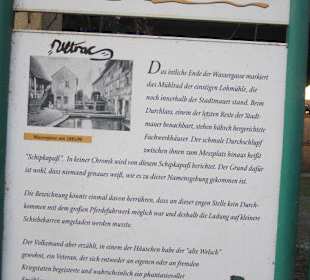 Das östliche Ende der Wassergasse markiert
das Mühlrad der einstigen Lohmühle, die
noch innerhalb der Stadtmauer stand. Beim
Durchlass, einem der letzten Reste der Stadt-
mauer benachbart, stehen hübsch hergerichtete
Fachwerkhäuser. Der schmale Durchschlupf
zwischen ihnen zum Messplatz hinaus heißt
Wassergasse um
"Schipkapaß". In keiner Chronik wird von diesem Schipkapaß berichtet. Der Grund dafür
ist wohl, dass niemand genaues weiß, wie es zu dieser Namensgebung gekommen ist.
Die Bezeichnung könnte einmal davon herrühren, dass an dieser engen Stelle kein Durch-
kommen mit dem großen Pferdefuhrwerk möglich war und deshalb die Ladung auf kleinere
Schiebekarren umgeladen werden musste.
Der Volksmund aber erzählt, in einem der Häuschen habe der "alte Welsch"
gewohnt, ein Veteran, der sich entweder an eigenen oder an fremden
Kriegstaten begeisterte und wahrscheinlich ein phantasievoller